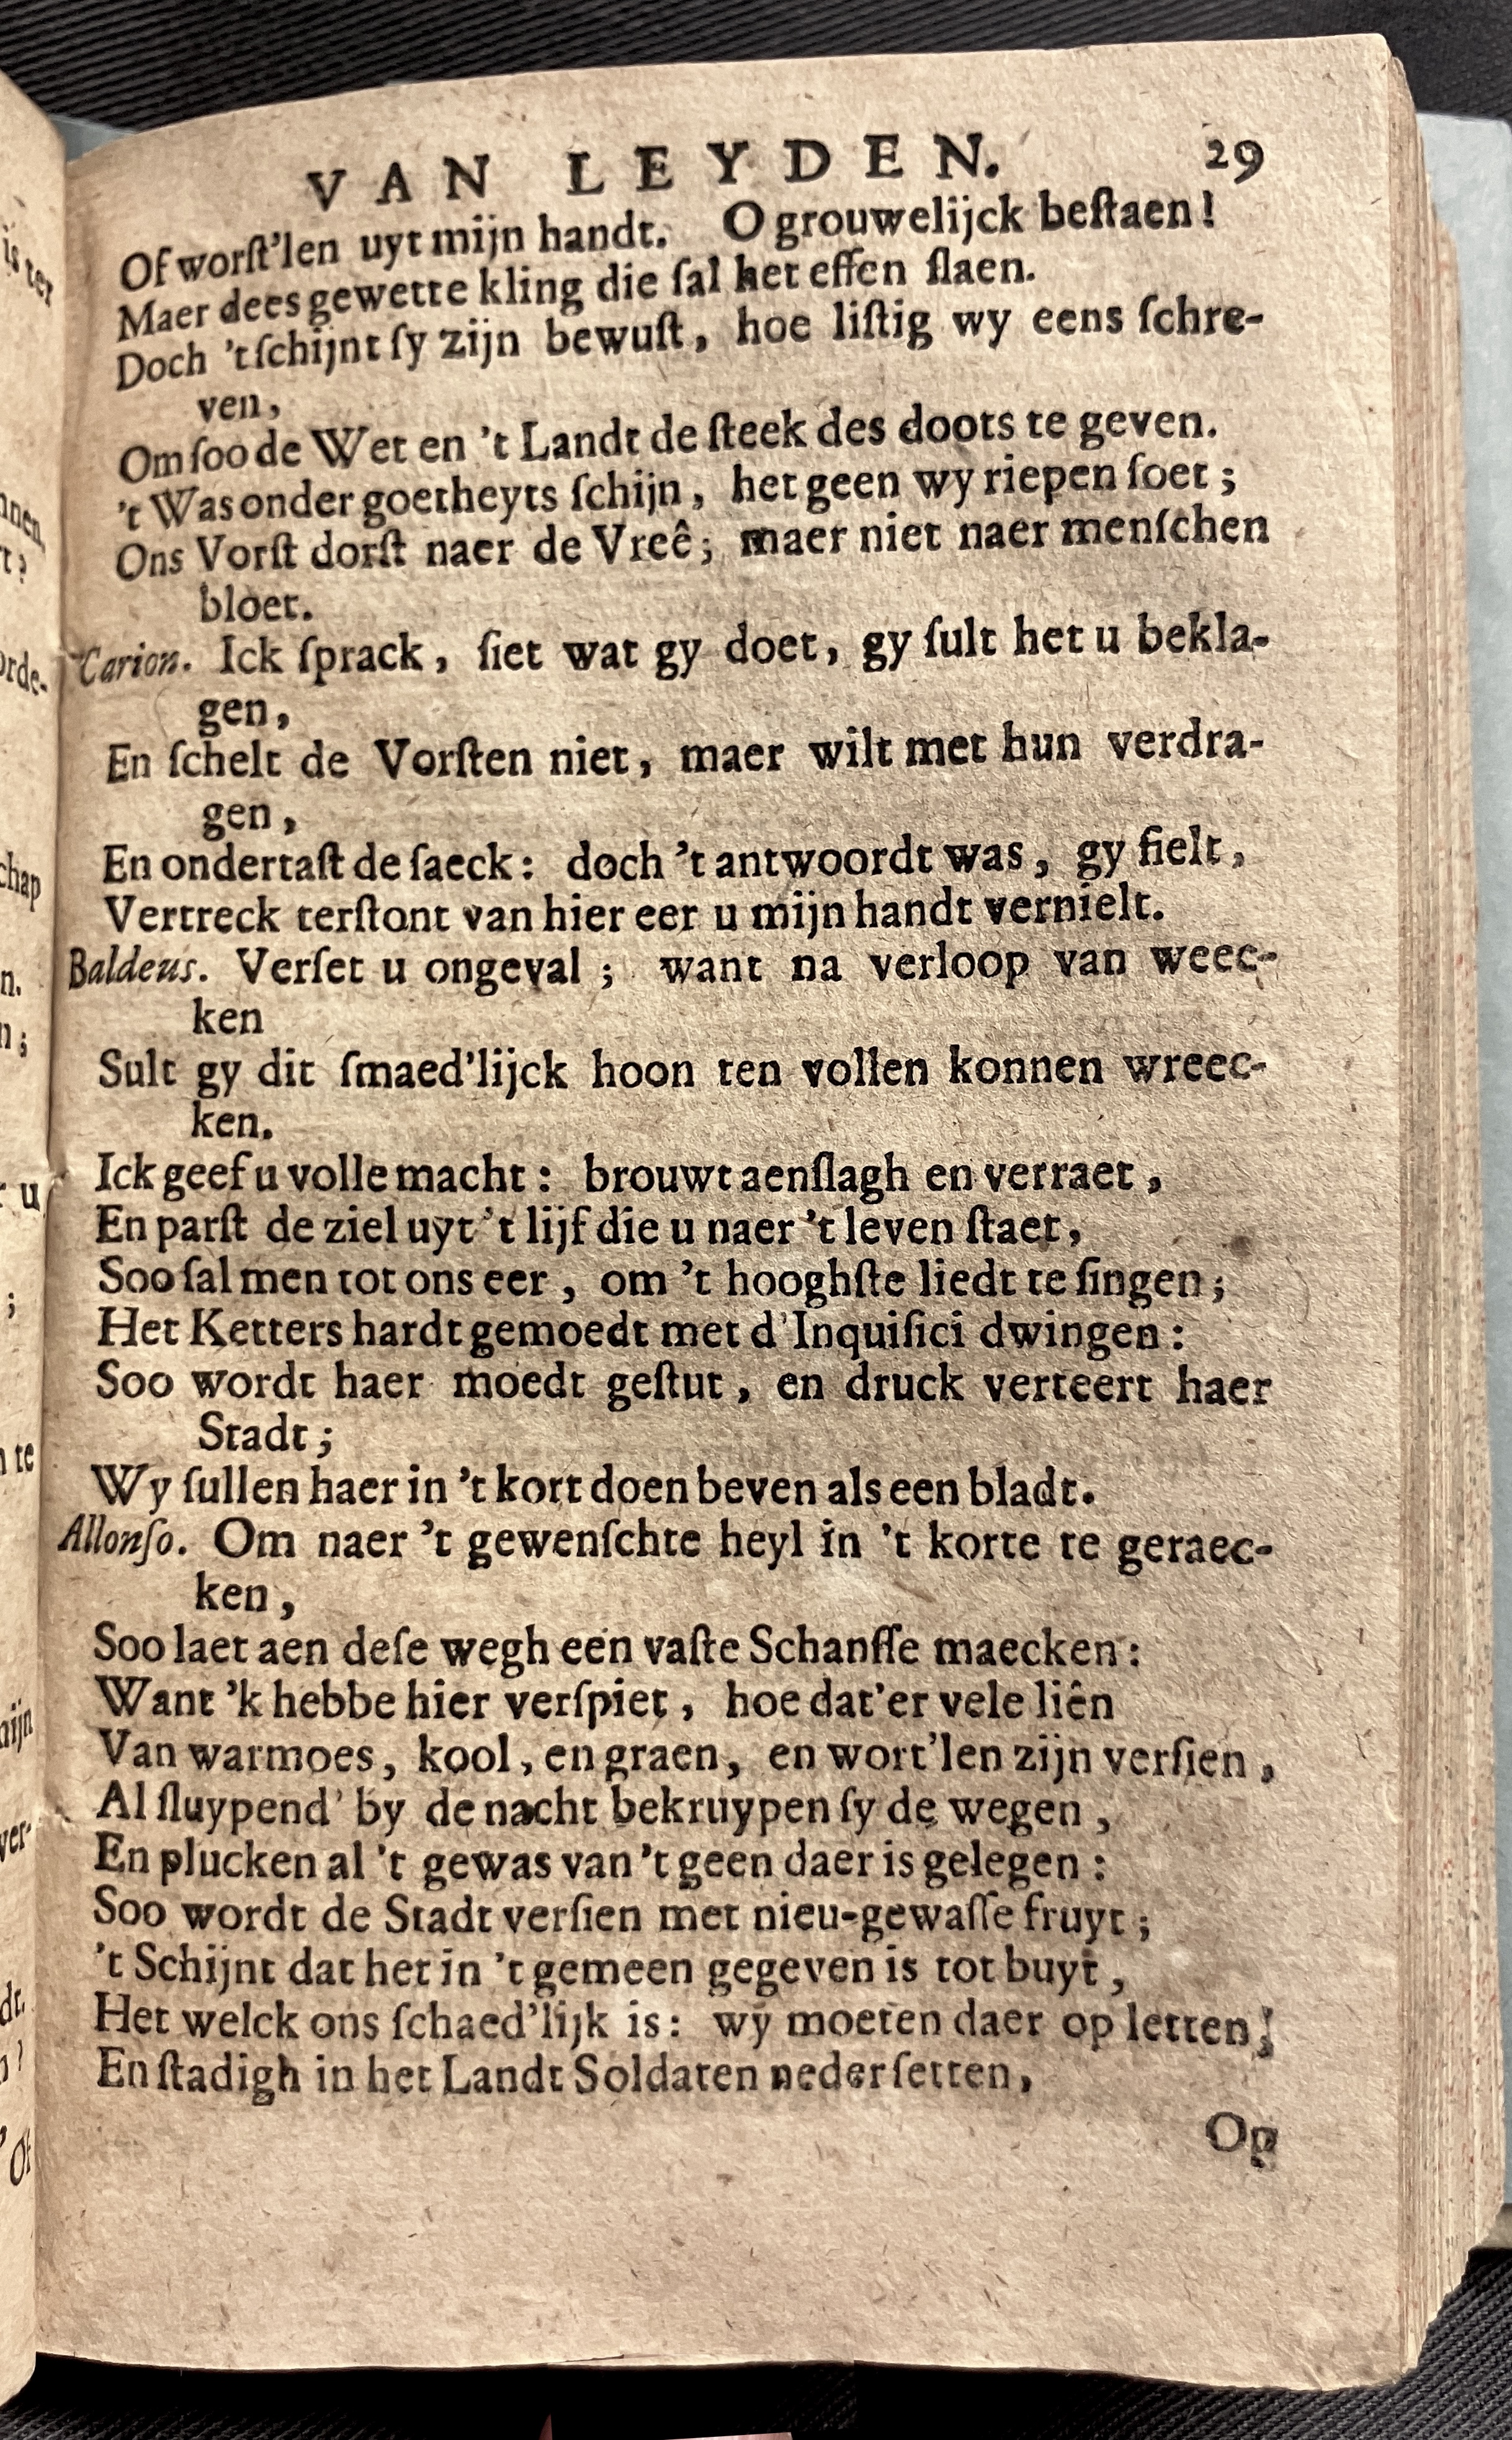 VAN LEYDEN. 29
Of worſt'len uyt mijn handt. O grouwelijck beſtaen!
Maer dees gewette kling die ſal het effen ſlaen.
Doch 't ſchijnt ſy zijn bewuſt, hoe liſtig wy eens ſchre-
ven,
Om ſoo de Wet en 't Landt de ſteek des doots te geven.
't Was onder goetheyts ſchijn, het geen wy riepen ſoet;
Ons Vorſt dorſt naer de Vreê; maer niet naer menſchen
bloet.
Carion. Ick ſprack, ſiet wat gy doet, gy ſult het u bekla-
gen,
En ſchelt de Vorſten niet, maer wilt met hun verdra-
gen,
En ondertaſt de ſaeck: doch 't antwoordt was, gy fielt,
Vertreck terſtont van hier eer u mijn handt vernielt.
Baldeus. Verſet u ongeval; want na verloop van weec-
ken
Sult gy dit ſmaed'lijck hoon ten vollen konnen wreec-
ken.
Ick geef u volle macht: brouwt aenſlagh en verraet,
En parſt de ziel uyt 't lijf die u naer 't leven ſtaet,
Soo ſal men tot ons eer, om 't hooghſte liedt te ſingen;
Het Ketters hardt gemoedt met d'Inquiſici dwingen:
Soo wordt haer moedt geſtut, en druck verteert haer
Stadt;
Wy ſullen haer in 't kort doen beven als een bladt.
Allonſo. Om naer 't gewenſchte heyl in 't korte te geraec-
ken,
Soo laet aen deſe wegh een vaſte Schanſſe maecken:
Want 'k hebbe hier verſpiet, hoe dat'er vele liên
Van warmoes, kool, en graen, en wort'len zijn verſien,
Al ſluypend' by de nacht bekruypen ſy de wegen,
En plucken al 't gewas van 't geen daer is gelegen:
Soo wordt de Stadt verſien met nieu-gewaſſe fruyt;
't Schijnt dat het in 't gemeen gegeven is tot buyt,
Het welck ons ſchaed'lijk is: wy moeten daer op letten;
En ſtadigh in het Landt Soldaten nederſetten,
Op